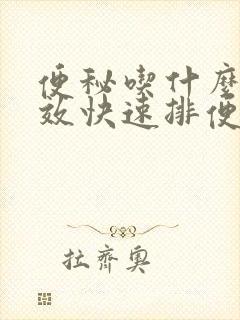 便秘喫什麼
效快速排便
拉齊奧